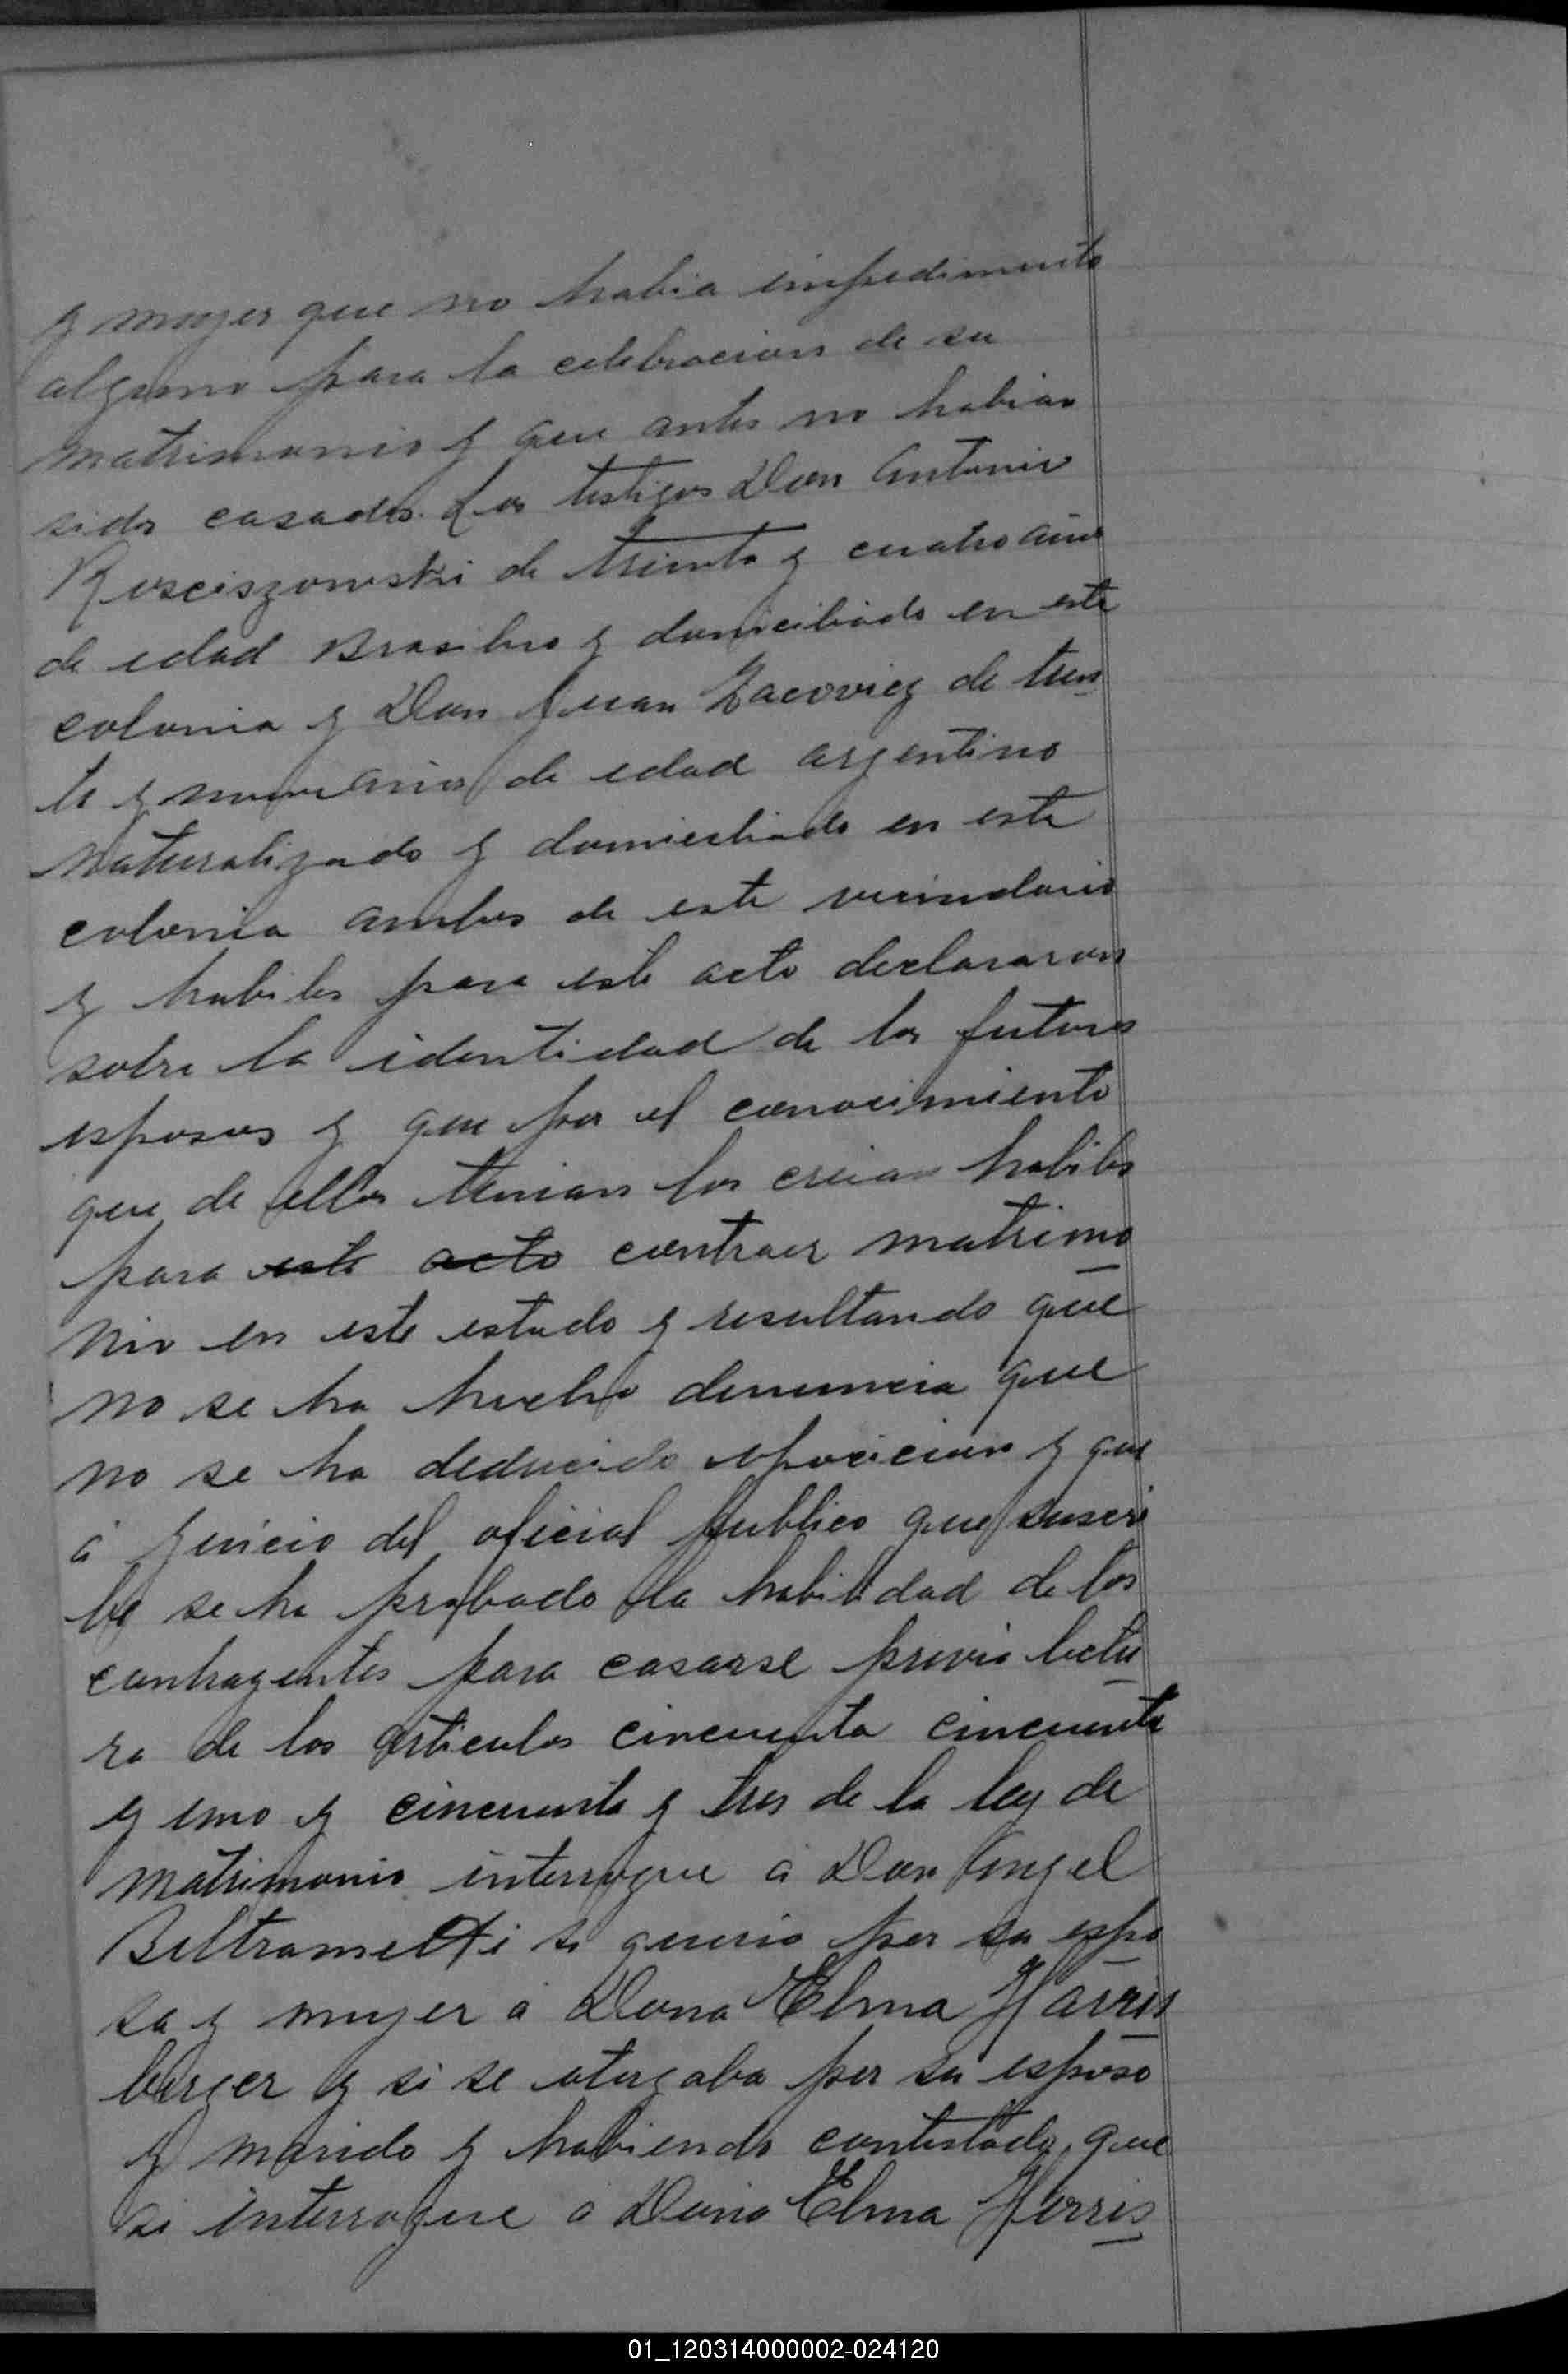 y mujer que no habia impedimento
alguno para la celebracion de su
matrimonio y que antes no habian
sidos casados. Los testigos Don Antonio
Rosciszowski de treinta y cuatro años
de edad Brasilero y domiciliado en esta
colonia y Don Juan Zacoviez de trein
ta y nueve años de edad argentino
naturalizado y domiciliado en esta
colonia ambos de este vecindario
y habiles para este acto declararon
sobre la identidad de los futuros
esposos y que por el conocimiento
que de ellos tenian los creian habiles
para este acto contraer matrimo
nio en este estado y resultando que
no se ha hecho denuncia que
no se ha deducido oposicion y que
á juicio del oficial publico que suscri
be se ha probado la habilidad de los
contrayentes para casarse previa lectu
ra de los articulos cincuenta cincuenta
y uno y cincuenta y tres de la ley de
matrimonio interrogue á Don Angel
Beltrametti si queria por su espo
sa y mujer á Dona Elma Harris
berger y si se otorgaba por su esposo
y marido y habiendo contestado que
si interrogue a Dona Elma Harris
01_120314000002-024120